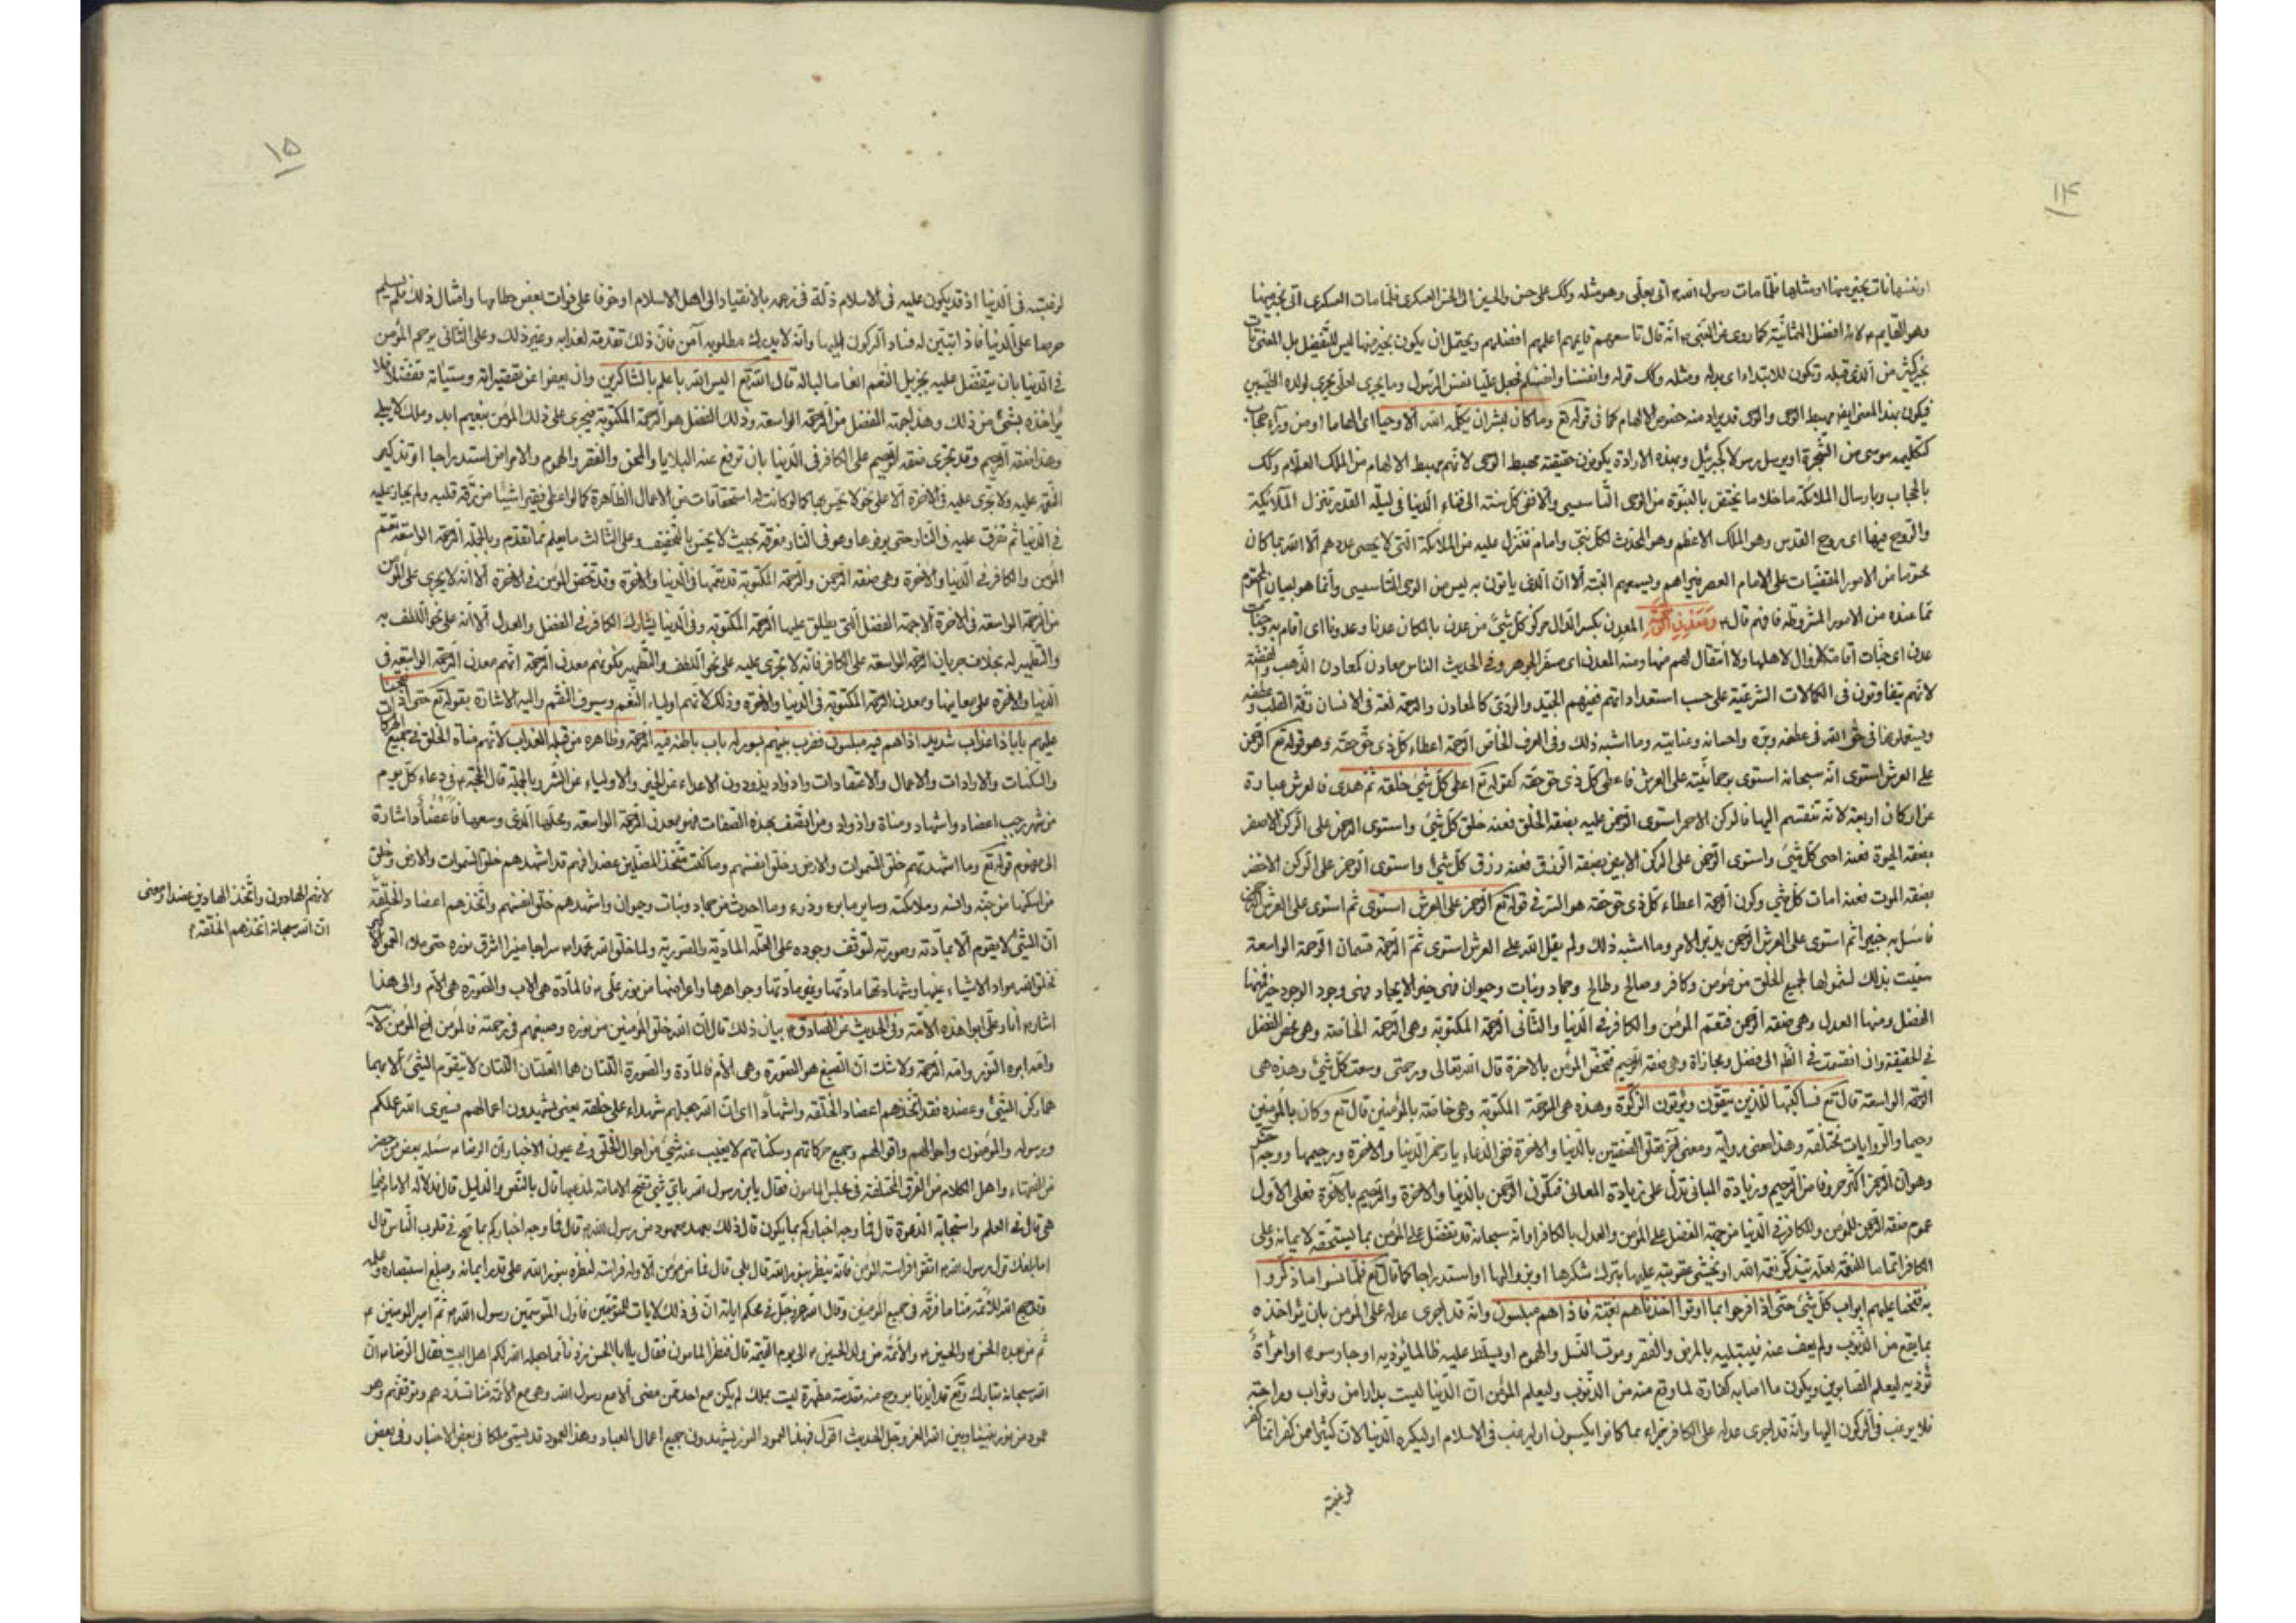 ١٤
او ننسها نات بخير منها او مثلها فلما مات رسول الله ص اتى بعلي وهو مثله وكك على حسن والحسين الى الحسن العسكرى فلما مات العسكرى اتى بخير منها
وهو القايم لانه افضل الثمانية كما روى عن النبي ص انه قال تاسعهم قايمهم اعلمهم افضلهم ويحتمل ان يكون بخير منها ليس للتفضيل بل المعنى نات
بخير كثير من الذى قبله وتكون للابتداء اى بدله ومثله وكك قوله وانفسنا وانفسكم فجعل عليا نفس الرسول وما يجرى لعلي يجرى لولده الطيبين
فيكون بهذا المعنى ايض مهبط الوحى والوحى قد يراد منه خصوص الالهام كما فى قوله تع وما كان لبشر ان يكلمه الله الا وحيا اى الهاما او من ورآء حجاب
كتكليمه موسى من الشجرة او يرسل رسولا كجبرئيل وبهذه الارادة يكونون حقيقة مهبط الوحى لانهم مهبط الالهام من الملك العلام وكك
بالحجاب وبارسال الملائكة ما خلا ما يختص بالنبوة من الوحى التاسيسى والا ففى كل سنة الى فناء الدنيا فى ليلة القدر تنزل الملائكة
والروح فيها اى روح القدس وهو الملك الاعظم وهو المحدث لكل نبى وامام تتنزل عليه من الملائكة التى لا يحصى عددهم الا الله بما كان
محتوما من الامور المقضيات على الامام العصر فيراهم ويسمعهم البتة الا ان الذى ياتون به ليس من الوحى التاسيسى وانما هو لبيان المحتوم
مما عنده من الامور المشروطة فافهم قال ع ومعدن الرحمة المعدن بكسر الدال مركز كل شئ من عدن بالمكان عدنا وعدونا اى اقام به وجنات
عدن اى جنات اقامة لا زوال لاهلها ولا انتقال لهم منها ومنه المعدن اى مستقر الجوهر وفى الحديث الناس معادن كمعادن الذهب والفضة
لانهم يتفاوتون فى الكمالات الشرعية على حسب استعداداتهم فمنهم الجيد والردى كالمعادن والرحمة لغة فى الانسان رقة القلب وعطفه
ويستعملونها فى حق الله فى عطفه وبره واحسانه وعنايته وما اشبه ذلك وفى العرف الخاص الرحمة اعطاء كل ذى حق حقه وهو قوله تع الرحمن
على العرش استوى انه سبحانه استوى برحمانيته على العرش فاعطى كل ذى حق حقه كقوله تع اعطى كل شئ خلقه ثم هدى فالعرش عبارة
عن اركان اربعة لانه تنقسم اليها فالركن الاحمر استوى الرحمن عليه بصفة الخلق فعنه خلق كل شئ واستوى الرحمن على الركن الاصفر
بصفة الحيوة فعنه احيى كل شئ واستوى الرحمن على الركن الابيض بصفة الرزق فعنه رزق كل شئ واستوى الرحمن على الركن الاخضر
بصفة الموت فعنه امات كل شئ وكون الرحمة اعطاء كل ذى حق حقه هو السر فى قوله تع الرحمن على العرش استوى ثم استوى على العرش الرحمن
فاسئل به خبيرا ثم استوى على العرش الرحمن يدبر الامر وما اشبه ذلك ولم يقل الله على العرش استوى ثم الرحمة قسمان الرحمة الواسعة
سميت بذلك لشمولها لجميع الخلق من مؤمن وكافر وصالح وطالح وجماد ونبات وحيوان فهى خير الايجاد فهى وجود الوجود خير فمنها
الفضل ومنها العدل وهى صفة الرحمن فتعم المؤمن والكافر فى الدنيا والثانى الرحمة المكتوبة وهى الرحمة الخاصة وهى محض الفضل
فى الحقيقة وان انقسمت فى الظاهر الى فضل ومجازاة وهى صفة الرحيم فتختص المؤمن بالاخرة قال الله تعالى ورحمتى وسعت كل شئ وهذه هى
الرحمة الواسعة قال تع فساكتبها للذين يتقون ويؤتون الزكوة وهذه هى الرحمة المكتوبة وهى خاصة بالمؤمنين قال تع وكان بالمؤمنين
رحيما والروايات مختلفة وهذا معنى رواية ومعنى آخر تعلق الصفتين بالدنيا والاخرة ففى الدعاء يا رحمن الدنيا والاخرة ورحيمهما ووجه آخر
وهو ان الرحمن اكثر حروفا من الرحيم وزيادة المبانى تدل على زيادة المعانى فيكون الرحمن بالدنيا والاخرة والرحيم بالاخرة فعلى الاول
عموم صفة الرحمن للمؤمن وللكافر فى الدنيا من جهة الفضل على المؤمن والعدل بالكافر او انه سبحانه قد يتفضل على المؤمن بما يستحقه لايمانه وعلى
الكافر اتماما للنعمة لعله يتذكر نعمة الله او يخشى عقوبته عليها بترك شكرها او بزوالها او استدراجا كما قال تع فلما نسوا ما ذكروا
به فتحنا عليهم ابواب كل شئ حتى اذا فرحوا بما اوتوا اخذناهم بغتة فاذا هم مبلسون وانه قد اجرى عدله على المؤمن بان يؤاخذه
بما يقع من الذنوب ولم يعف عنه فيبتليه بالمرض والفقر وموت النسل والهموم او يسلط عليه ظالما يؤذيه او جار سوء او امرأة
تؤذيه ليعلم الصابرين ويكون ما اصابه كفارة لما وقع منه من الذنوب وليعلم المؤمن ان الدنيا ليست بدار امن وثواب وراحة
فلا يرغب فى الركون اليها وانه قد اجرى عدله على الكافر جزاء بما كانوا يكسبون او ليرغب فى الاسلام او ليكره الدنيا لان كثيرا ممن كفر انما كفر
لرغبته
١٥
لرغبته فى الدنيا اذ قد يكون عليه فى الاسلام ذلة فى زعمه بالانقياد الى اهل الاسلام او خوفا على فوات بعض حطامها وامثال ذلك فلم يسلم
حرصا على الدنيا فاذا تبين له فساد الركون اليها وانه لا يدرك مطلوبه آمن فان ذلك تقدمة لعذابه وغير ذلك وعلى الثانى يرحم المؤمن
فى الدنيا بان يتفضل عليه بجزيل النعم انعاما لباله قال الله تع اليس الله باعلم بالشاكرين وان يعفوا عن تقصيراته وسيئاته تفضلا فلا
يؤاخذه بشئ من ذلك وهذا جهة الفضل من الرحمة الواسعة وذلك الفضل هو الرحمة المكتوبة فيجرى على ذلك المؤمن بنعيم ابد وملك لا يبلى
وهذا صفة الرحيم وقد تجرى صفة الرحيم على الكافر فى الدنيا بان ترفع عنه البلايا والمحن والفقر والهموم والامراض استدراجا او تذكير
النعمة عليه ولا تجرى عليه فى الاخرة الا على نحو لا يحس بها كما لو كانت له استحقاقات من الاعمال الظاهرة كما لو اعطى فقيرا شيئا من رقة قلبه ولم يجاز عليه
فى الدنيا ثم تفرق عليه فى النار حتى يوفرها وهو فى النار مفرقة بحيث لا يحس بالتخفيف وعلى الثالث ما يعلم مما تقدم وبالجملة الرحمة الواسعة تعم
المؤمن والكافر فى الدنيا والاخرة وهى صفة الرحمن والرحمة المكتوبة قد تعمها فى الدنيا والاخرة وقد تختص المؤمن فى الاخرة الا انه لا يجرى على المؤمن
من الرحمة الواسعة فى الاخرة الا جهة الفضل التى يطلق عليها الرحمة المكتوبة وفى الدنيا يشارك الكافر فى الفضل والعدل الا انه على نحو اللطف به
والتطهير له بخلاف جريان الرحمة الواسعة على الكافر فانه لا تجرى عليه على نحو اللطف والتطهير فكونهم معدن الرحمة انهم معدن الرحمة الواسعة فى
الدنيا والاخرة على معانيها ومعدن الرحمة المكتوبة فى الدنيا والاخرة وذلك لانهم اولياء النعم وسيوف النقم واليه الاشارة بقوله تع حتى اذا فتحنا
عليهم بابا ذا عذاب شديد اذا هم فيه مبلسون فضرب بينهم بسور له باب باطنه فيه الرحمة وظاهره من قبله العذاب لانهم مناة الخلق فى جميع الحركات
والسكنات والارادات والاعمال والاعتقادات واذواد يذودون الاعداء عن الخير والاولياء عن الشر وبالجملة قال الحجة ع فى دعاء كل يوم
من شهر رجب اعضاد واشهاد ومناة واذواد ومن اتصف بهذه الصفات فهو معدن الرحمة الواسعة ومحلها الذى وسعها فاعضادا اشارة
الى مفهوم قوله تع وما اشهدتهم خلق السموات والارض وخلق انفسهم وما كنت متخذ المضلين عضدا فهم قد اشهدهم خلق السموات والارض وخلق
من اسكنها من جنه وانسه وملائكته وساير ما برء وذرء وما احدث من جماد ونبات وحيوان واشهدهم خلق انفسهم واتخذهم اعضادا لخلقه
ان الشئ لا يقوم الا بمادته وصورته لتوقف وجوده على العلة المادية والصورية ولما خلق الله محمدا ص سراجا منيرا اشرق نوره حتى ملاء العمق الاكبر
فخلق الله مواد الاشياء غيبها وشهادتها مادتها وغير مادتها وجواهرها واعراضها من نور علي ع فالمادة هى الاب والصورة هى الام والى هذا
اشار ص انا وعلي ابوا هذه الامة وفى الحديث عن الصادق ع بيان ذلك قال ان الله خلق المؤمنين من نوره وصبغهم فى رحمته فالمؤمن اخ المؤمن لابيه
وامه ابوه النور وامه الرحمة ولا شك ان الصبغ هو الصورة وهى الام فالمادة والصورة اللتان هما العلتان اللتان لا يتقوم الشئ الا بهما
هما ركن الشئ وعضده فقد اتخذهم اعضادا لخلقه واشهادا اى ان الله جعلهم شهداء على خلقه يعنى يشهدون اعمالهم فسيرى الله عملكم
ورسوله والمؤمنون واحوالهم واقوالهم وجميع حركاتهم وسكناتهم لا يغيب عنه شئ من احوال الخلق وفى عيون الاخبار ان الرضا ع سئله بعض من حضر
من الفقهاء واهل الكلام من الفرق المختلفة فى مجلس المامون فقال يابن رسول الله باى شئ تصح الامامة لمدعيها قال بالنص والدليل قال فدلالة الامام فيما
هى قال فى العلم واستجابة الدعوة قال فما وجه اخباركم بما يكون قال ذلك بعهد معهود من رسول الله ص قال فما وجه اخباركم بما تصح فى قلوب الناس قال
اما بلغك قول رسول الله ص اتقوا فراسة المؤمن فانه ينظر بنور الله قال بلى قال فما من مؤمن الا وله فراسة لنظره بنور الله على قدر ايمانه ومبلغ استبصاره وعلمه
وقد جمع الله للائمة منا ما فرقه فى جميع المؤمنين وقال الله عز وجل فى محكم كتابه ان فى ذلك لايات للمتوسمين فاول المتوسمين رسول الله ص ثم امير المؤمنين ع
ثم من بعده الحسن ع والحسين ع والائمة من ولد الحسين ع الى يوم القيمة قال فنظر المامون فقال يا ابا الحسن زدنا مما جعله الله لكم اهل البيت فقال الرضا ع ان
الله سبحانه تبارك وتع قد ايدنا بروح منه مقدسة مطهرة ليست بملك لم يكن مع احد ممن مضى الا مع رسول الله وهى مع الائمة منا تسددهم وتوفقهم وهو
عمود من نور بيننا وبين الله العز وجل الحديث اقول فبهذا العمود النور يشهدون جميع اعمال العباد وهذا العمود قد يسمى ملكا فى بعض الاخبار وفى بعض
لانهم الهادون واتخذ الهادين عضدا ومعنى
ان الله سبحانه اتخذهم لخلقه